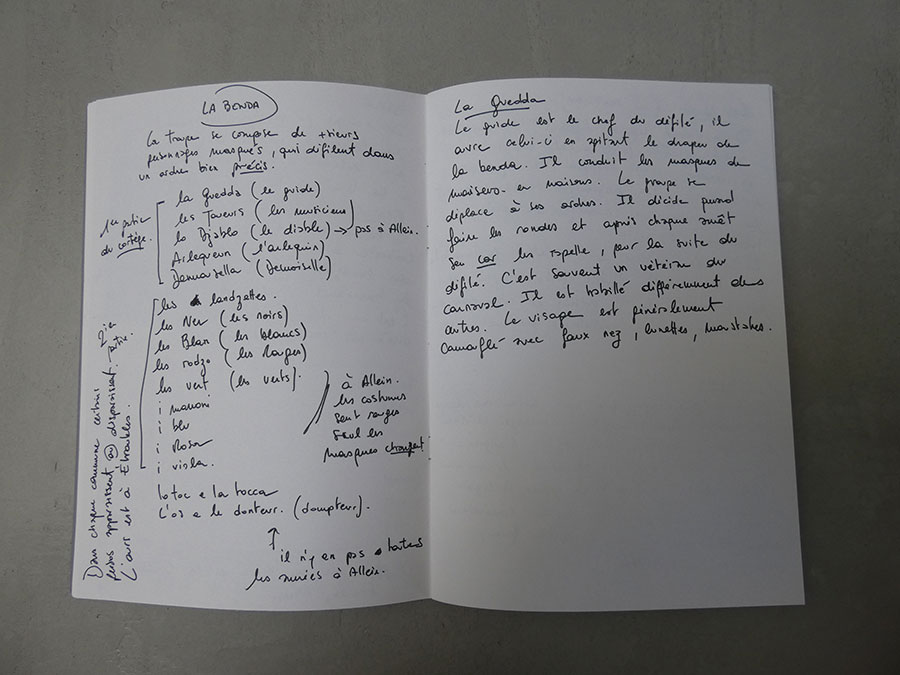 LA BENDA
La troupe se compose de +sieurs
personnages masqués, qui défilent dans
un ordre bien précis.
1ère partie
du cortège.
la Guedda (le guide)
les Toveurs (les musiciens)
lo Djablo (le diable) → pas à Allein.
Arlequeun (l'arlequin)
Demoisella (Demoiselle)
2ie
partie
les landzettes.
les Ner (les noirs)
les Blan (les blancs)
les rodzo (les Rouges)
les vert (les verts).
i marroni
i blu
i Rosa
i viola.
à Allein.
les costumes
sont rouges
seul les
masques changent
lo toc e la tocca
L'or e le donteur. (dompteur).
↑
il n'y en pas toutes
les années à Allein.
Dans chaque commune certains
persos apparaissent ou disparaissent.
L'ours est à Etroubles.
La Guedda
Le guide est le chef du défilé, il
ouvre celui-ci en agitant le drapeau de
la benda. Il conduit les masques de
maisons en maisons. Le groupe se
déplace à ses ordres. Il décide quand
faire les rondes et après chaque arrêt
son cor les rapelle, pour la suite du
défilé. C'est souvent un vétéran du
carnaval. Il est habillé différemment des
autres. Le visage est généralement
camouflé avec faux nez, lunettes, moustaches.